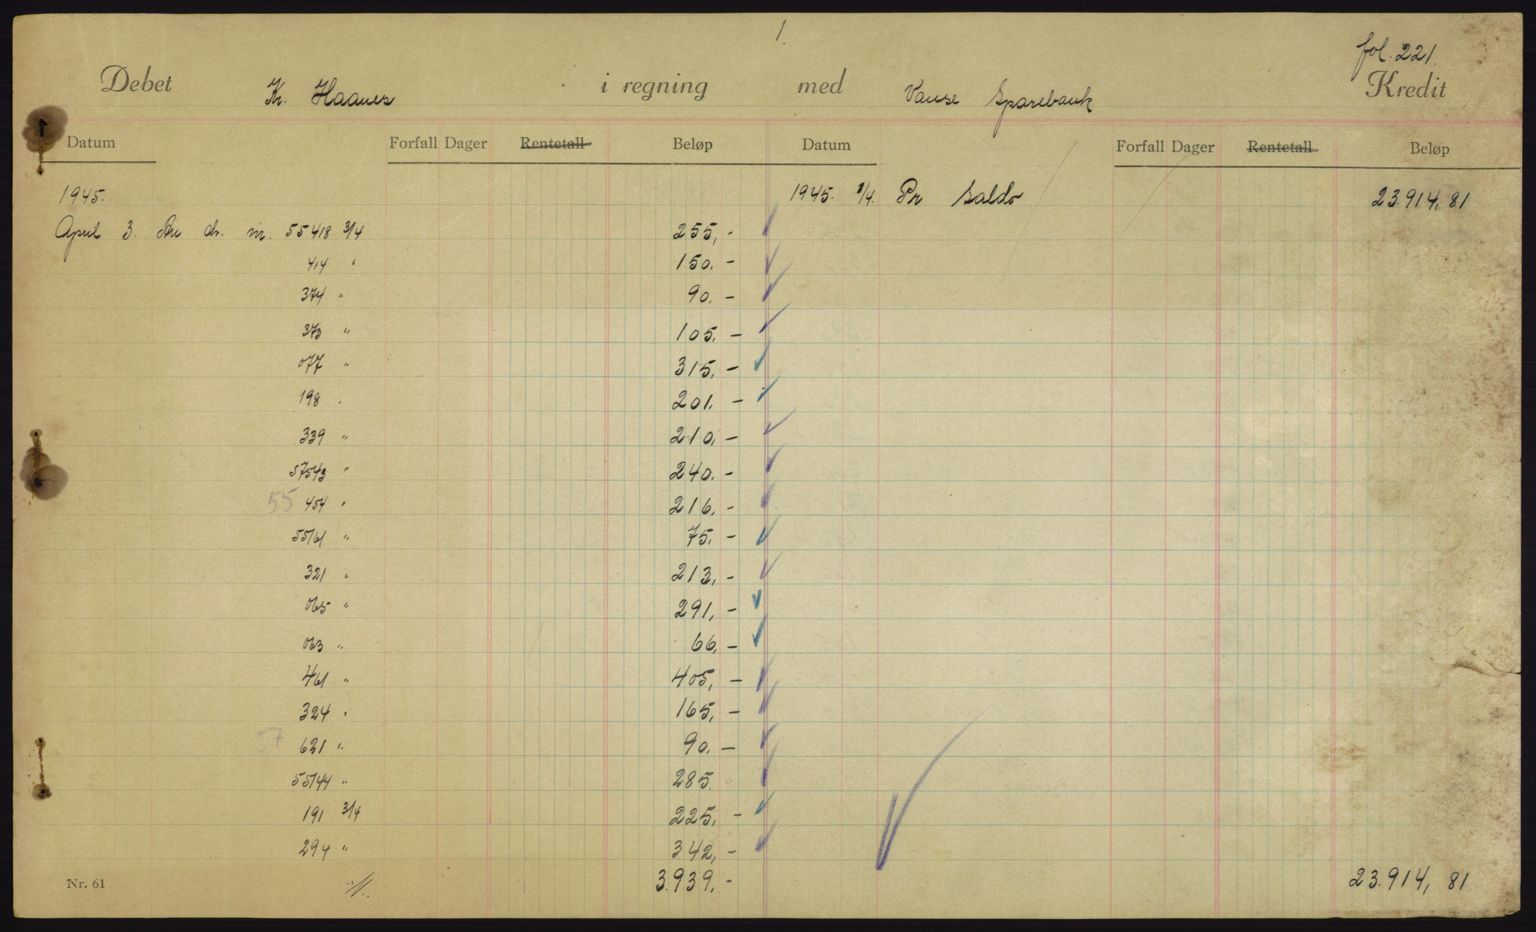 1.
fol. 221.
Debet Kr. Haanes i regning med Vanse Sparebank Kredit
Datum Forfall Dager Rentetall Beløp Datum Forfall Dager Rentetall Beløp
1945. 1945. 1/4. Pr saldo 23.914,81
April 3. dr. nr. 55418 3/4 255,-
414 " 150.-
374 " 90.-
373 " 105.-
077 " 315.-
198 " 201.-
339 " 210,-
57543 " 240.-
55 454 " 216.-
55161 " 75.-
321 " 213,-
065 " 291,-
063 " 66,-
461 " 405,-
324 " 165,-
57 621 " 90.-
55144 " 285
191 3/4 225,-
294 " 342,-
Nr. 61 3.939,- 23.914, 81